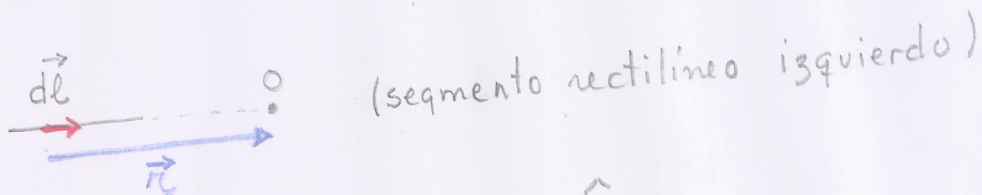 d⃗ℓ
O
(segmento rectilíneo izquierdo)
r⃗